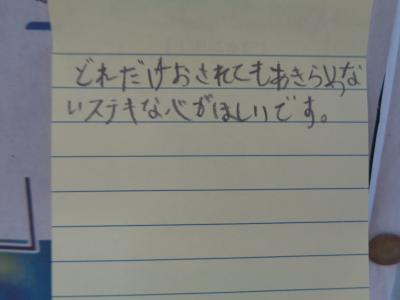 どれだけおされてもあきらめな
いステキな心がほしいです。